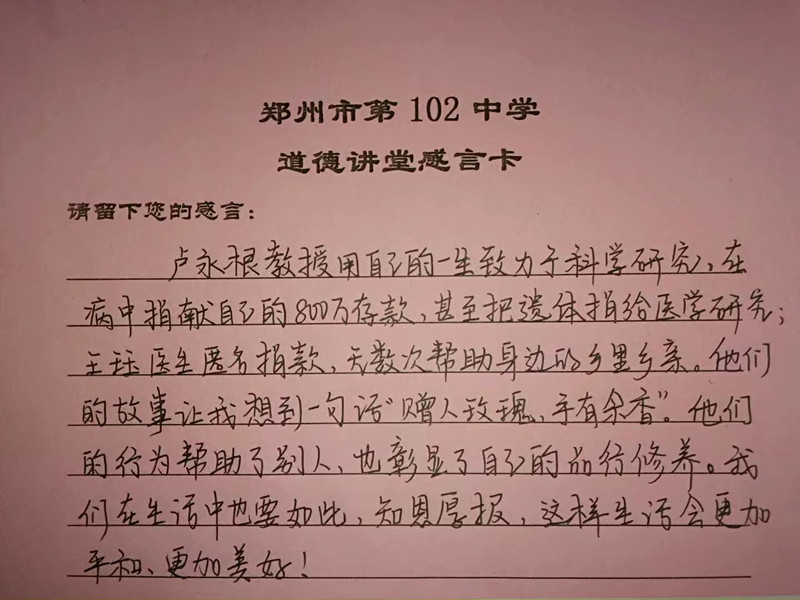 郑州市第102中学
道德讲堂感言卡
请留下您的感言：
卢永根教授用自己的一生致力于科学研究，在
病中捐献自己的800万存款，甚至把遗体捐给医学研究；
王珏医生匿名捐款，无数次帮助身边的乡里乡亲。他们
的故事让我想到一句话“赠人玫瑰，手有余香”。他们
的行为帮助了别人，也彰显了自己的品行修养。我
们在生活中也要如此，知恩厚报，这样生活会更加
平和、更加美好！